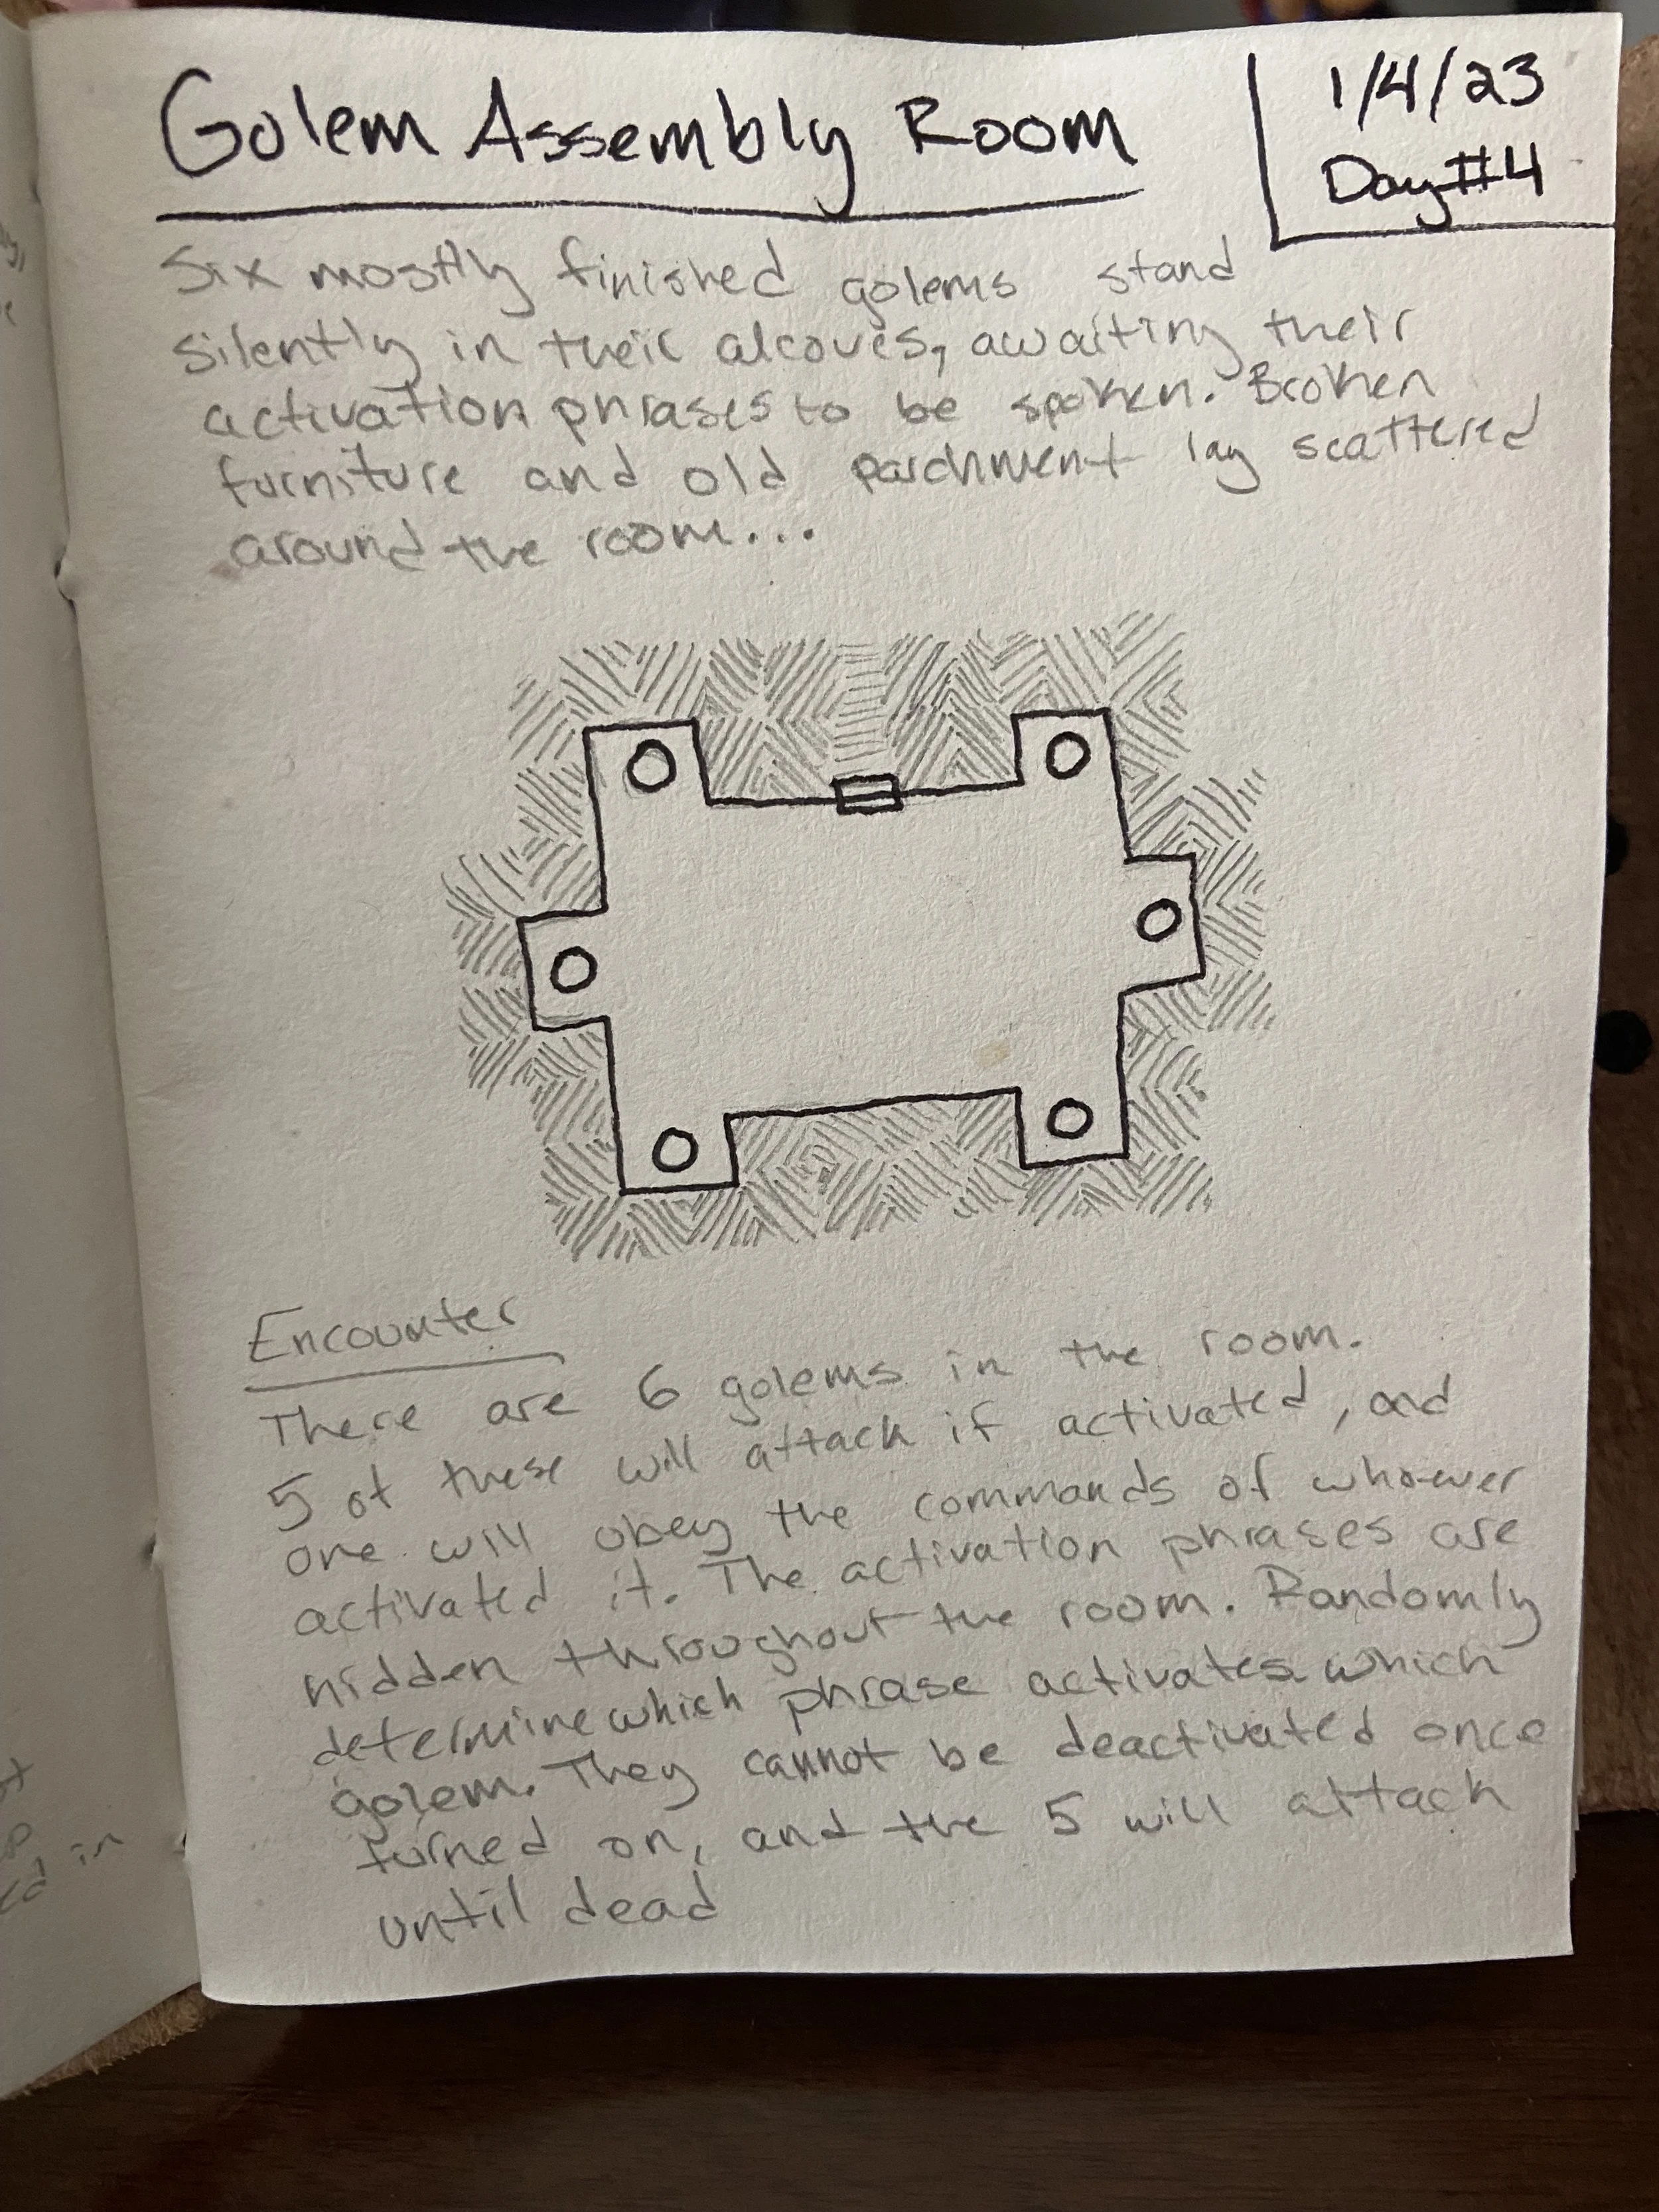 Golem Assembly Room
1/4/23
Day #4
Six mostly finished golems stand
silently in their alcoves, awaiting their
activation phrases to be spoken. Broken
furniture and old parchment lay scattered
around the room...
Encounter
There are 6 golems in the room.
5 of these will attack if activated, and
one will obey the commands of whoever
activated it. The activation phrases are
hidden throughout the room. Randomly
determine which phrase activates which
golem. They cannot be deactivated once
turned on, and the 5 will attack
until dead
in